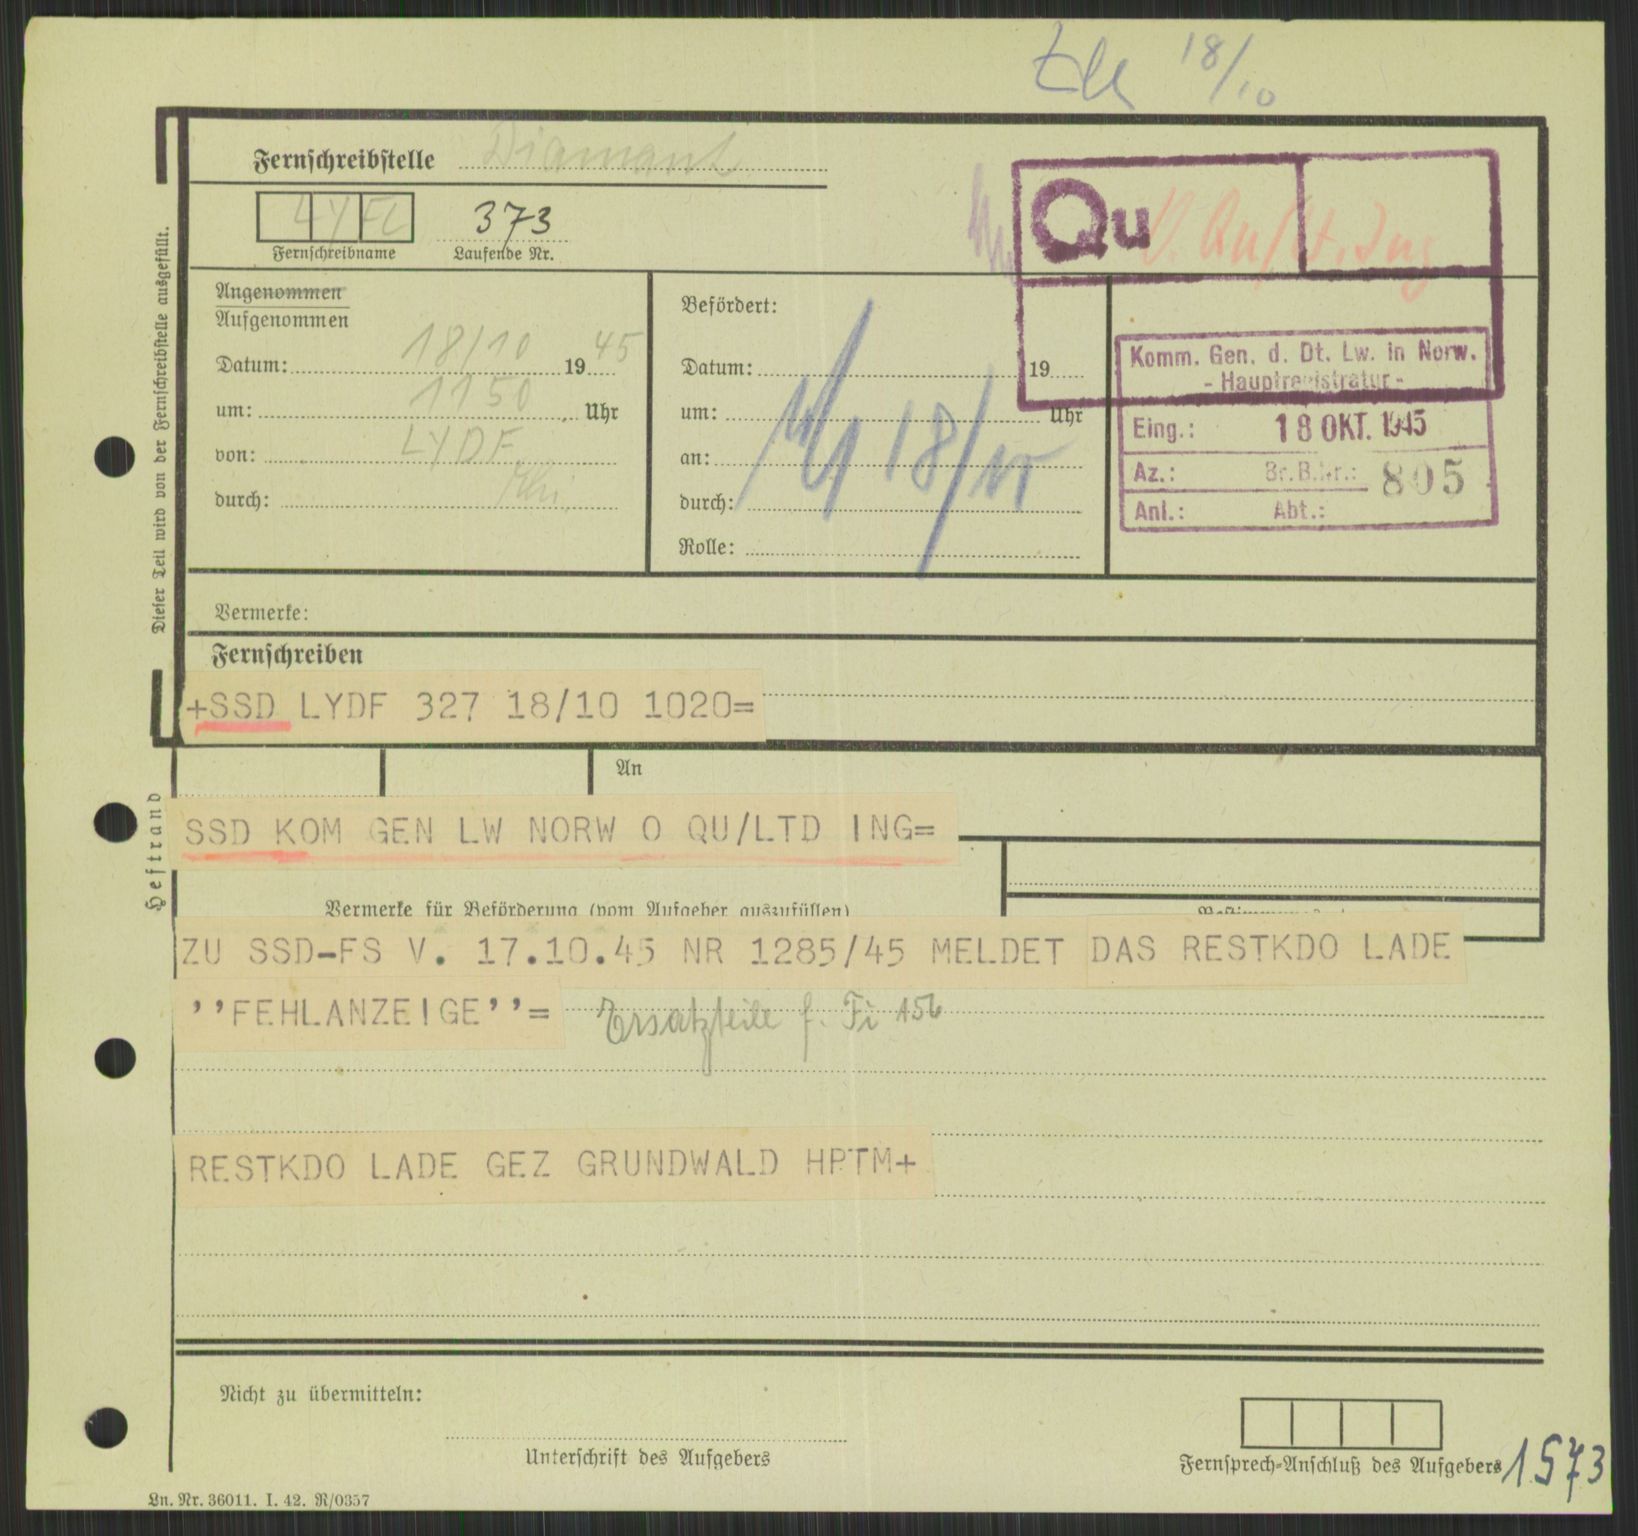 18/10
Fernschreibstelle Diamant
LYFL 373
Fernschreibname Laufende Nr.
Qu
Angenommen
Aufgenommen
Datum: 18/10 1945
um: 1150 Uhr
von: LYDF
durch:
Befördert:
Datum: 19
um: Uhr
an:
durch:
Rolle:
18/10
Komm. Gen. d. Dt. Lw. in Norw.
- Hauptregistratur -
Eing.: 18 OKT. 1945
Az.: Br.B.Nr.: 805
Anl.: Abt.:
Dieser Teil wird von der Fernschreibstelle ausgefüllt.
Vermerke:
Fernschreiben
+SSD LYDF 327 18/10 1020=
An
SSD KOM GEN LW NORW O QU/LTD ING=
Heftrand
Vermerke für Beförderung (vom Aufgeber auszufüllen)
ZU SSD-FS V. 17.10.45 NR 1285/45 MELDET DAS RESTKDO LADE
''FEHLANZEIGE''= Ersatzteile f. Fi 156
RESTKDO LADE GEZ GRUNDWALD HPTM+
Nicht zu übermitteln:
Unterschrift des Aufgebers
Fernsprech-Anschluß des Aufgebers
1573
Ln. Nr. 36011. I. 42. R/0357